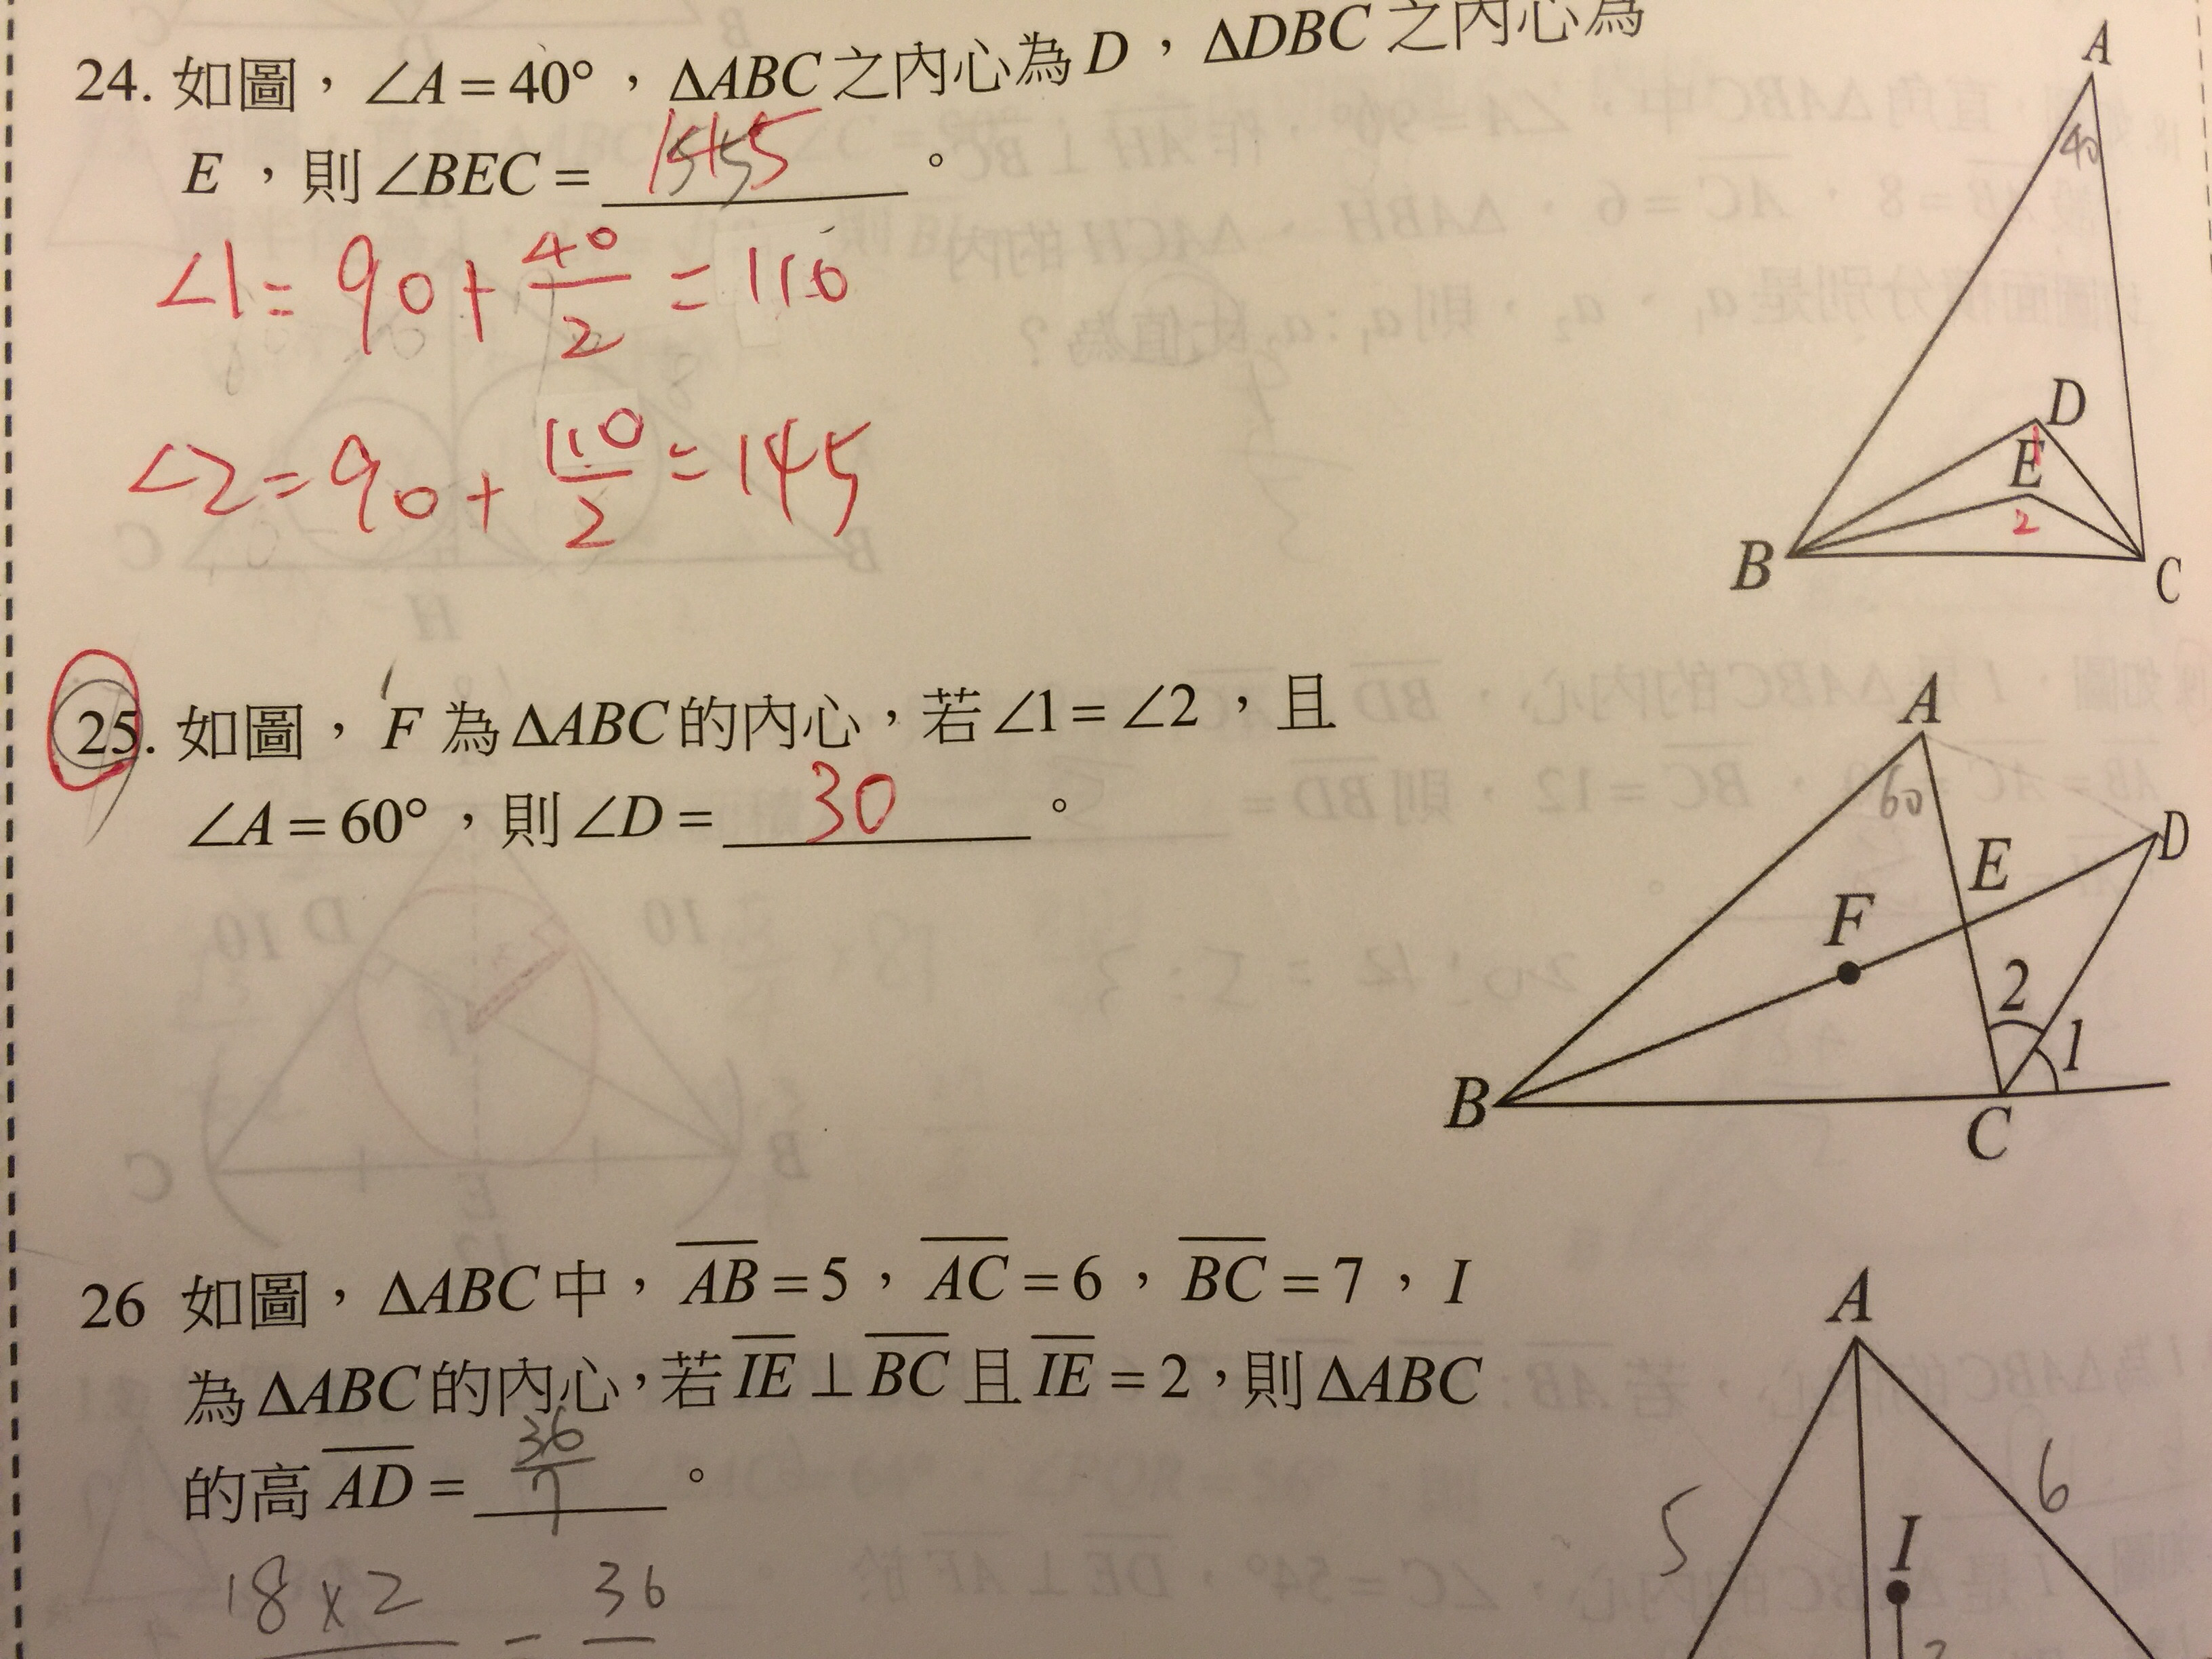 24. 如圖，∠A = 40°，ΔABC 之內心為 D，ΔDBC 之內心為
E，則 ∠BEC = 145。
∠1 = 90 + 40/2 = 110
∠2 = 90 + 110/2 = 145
A
40
D
1
E
2
B
C
25. 如圖，F 為 ΔABC 的內心，若 ∠1 = ∠2，且
∠A = 60°，則 ∠D = 30。
A
60
D
E
F
2
1
B
C
26 如圖，ΔABC 中，AB = 5，AC = 6，BC = 7，I
為 ΔABC 的內心，若 IE ⊥ BC 且 IE = 2，則 ΔABC
的高 AD = 36/7。
18 × 2 = 36
A
5
6
I